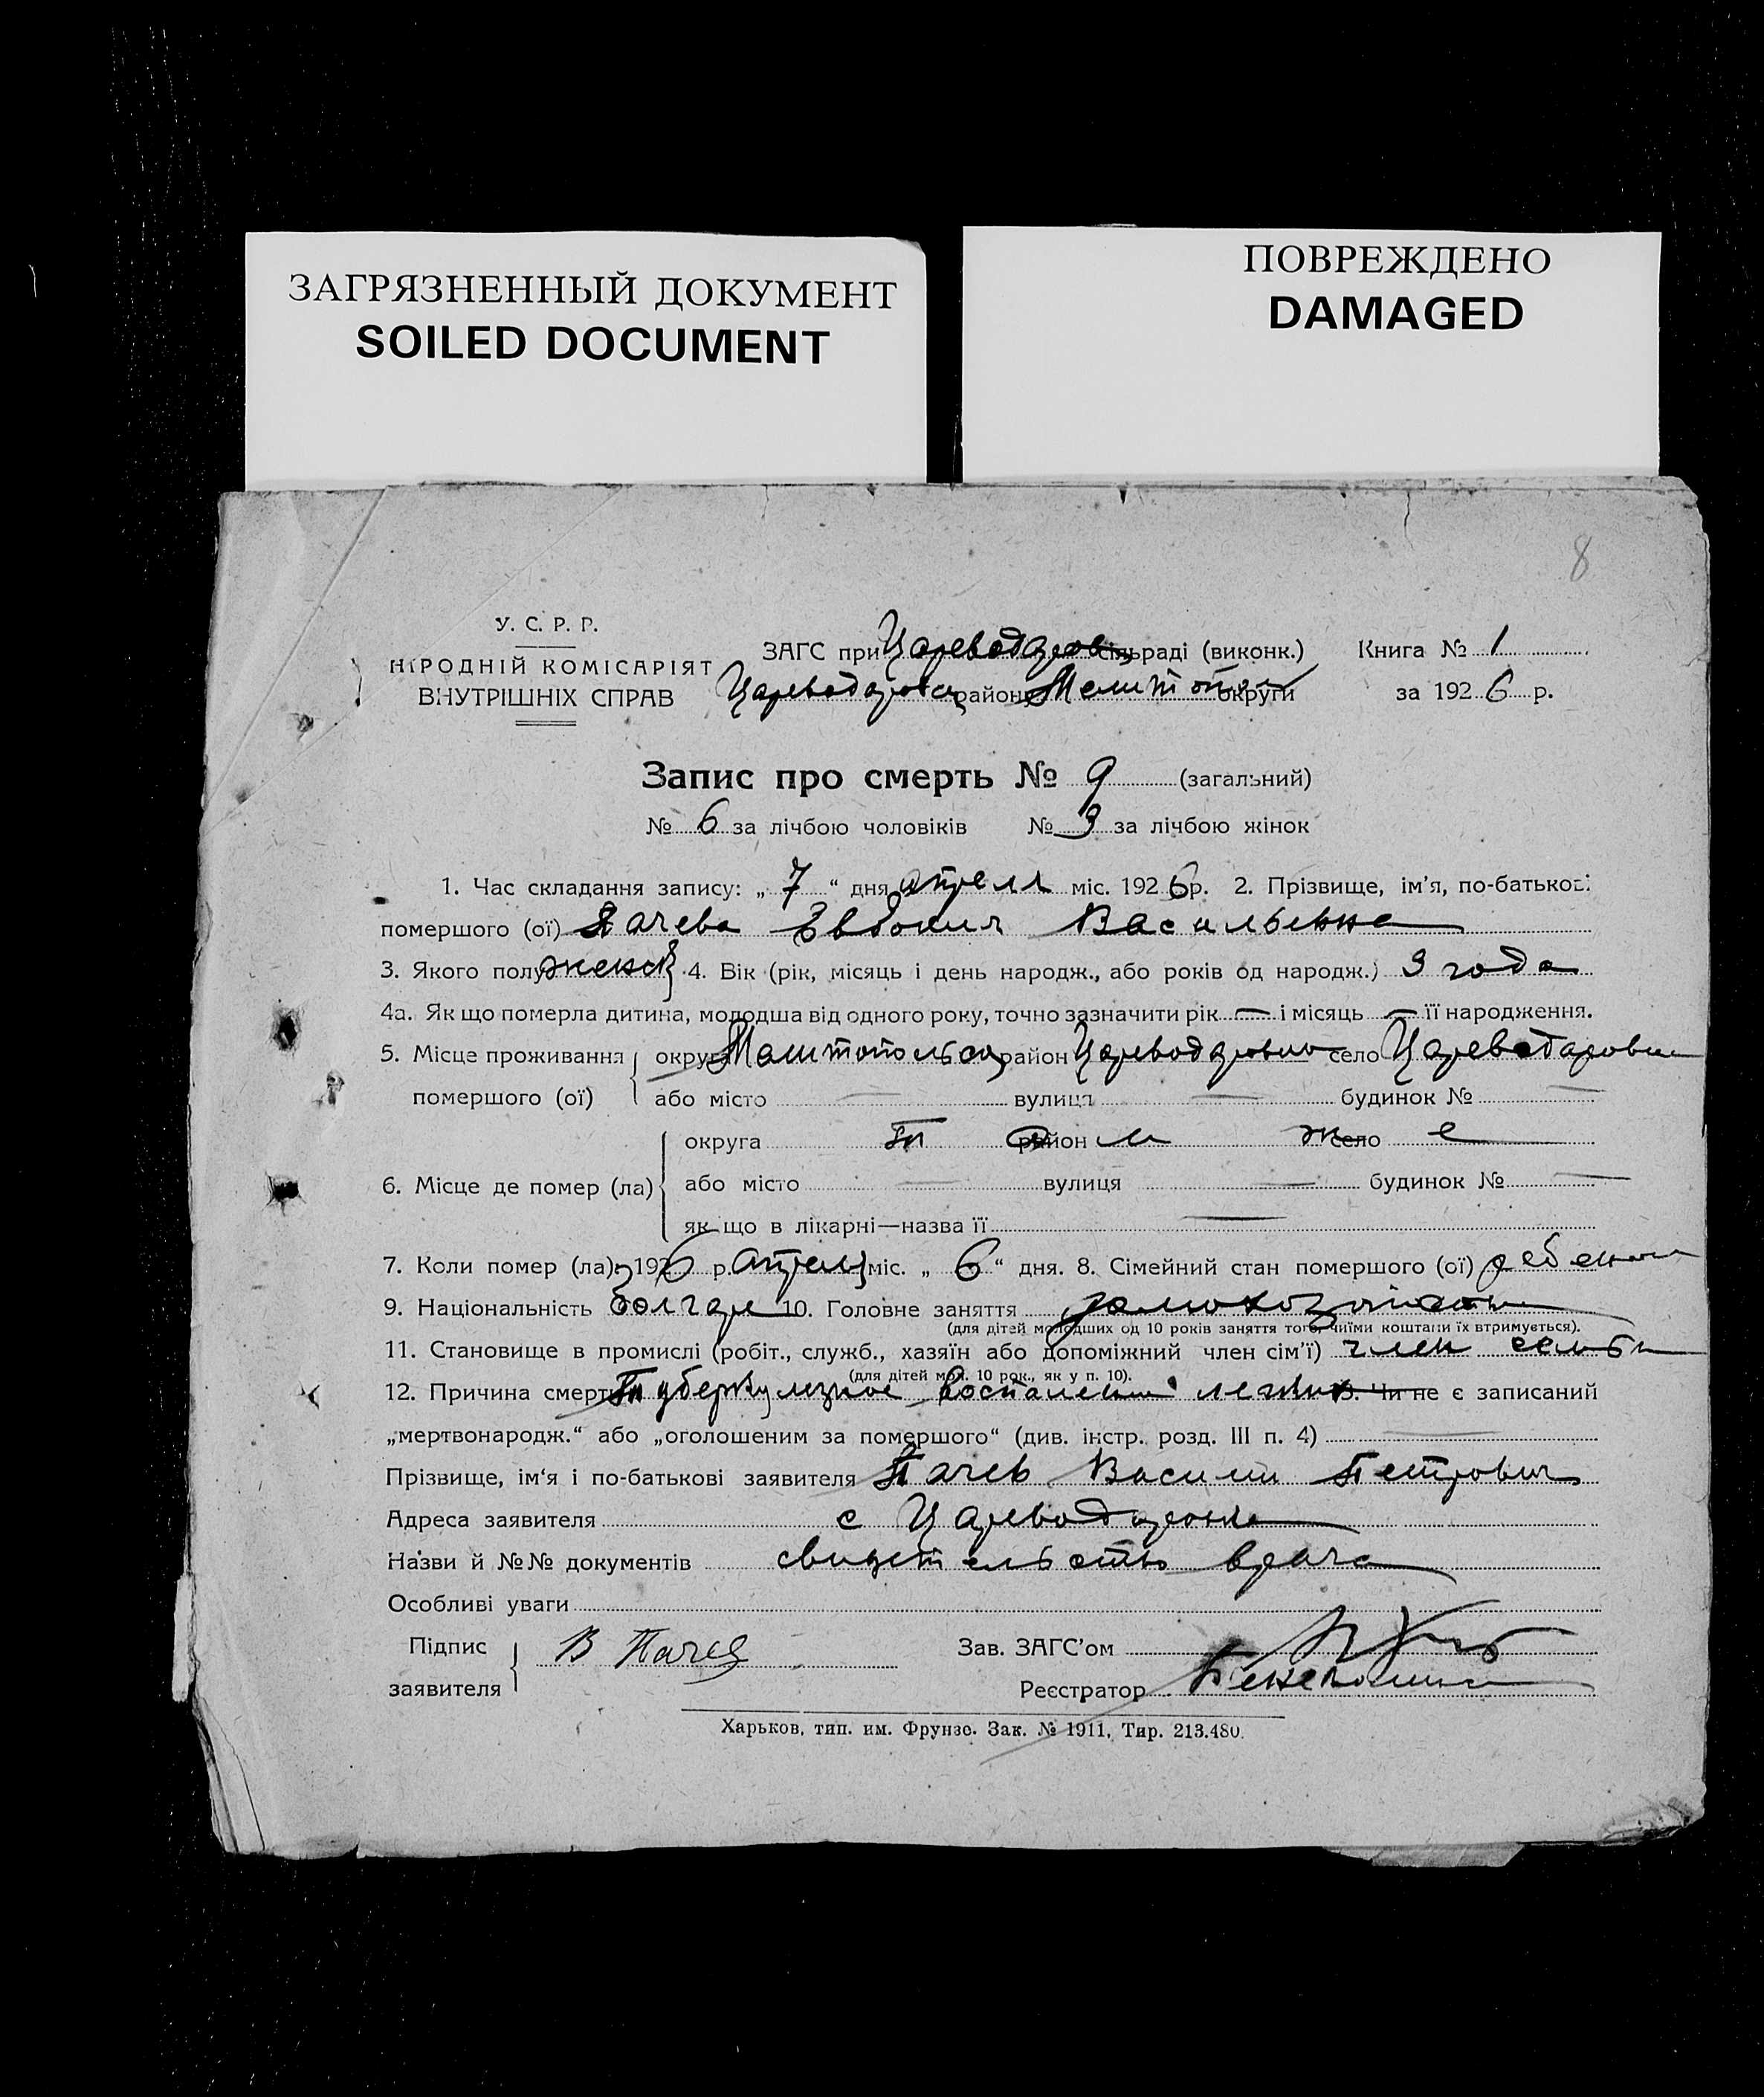 ЗАГРЯЗНЕННЫЙ ДОКУМЕНТ
SOILED DOCUMENT
ПОВРЕЖДЕНО
DAMAGED
8
У. С. Р. Р.
НАРОДНІЙ КОМІСАРІЯТ
ВНУТРІШНІХ СПРАВ
ЗАГС при Цареводаров сільраді (виконк.) Книга № 1
Цареводаровск району Мелитопол округи за 1926 р.
Запис про смерть № 9 (загальний)
№ 6 за лічбою чоловіків № 3 за лічбою жінок
1. Час складання запису: „ 7 “ дня апреля міс. 1926 р. 2. Прізвище, ім'я, по-батькові
помершого (ої) Пачева Евдокия Васильевна
3. Якого полу женск 4. Вік (рік, місяць і день народж., або років од народж.) 3 года
4а. Якщо померла дитина, молодша від одного року, точно зазначити рік — і місяць — її народження.
5. Місце проживання округа Мелитопольск район Цареводаровка село Цареводаровка
помершого (ої) або місто — вулиця — будинок № —
округа т район а м село ж е
6. Місце де помер (ла) або місто — вулиця — будинок № —
якщо в лікарні—назва її —
7. Коли помер (ла): 1926 р. апреля міс. „ 6 “ дня. 8. Сімейний стан помершого (ої) ребенок
9. Національність болгаре 10. Головне заняття
(для дітей молодших од 10 років заняття того, чиїми коштами їх втримується).
11. Становище в промислі (робіт., служб., хазяїн або допоміжний член сім'ї) член семьи
(для дітей мол. 10 рок., як у п. 10).
12. Причина смерти Туберкулезное воспаление легких 13. Чи не є записаний
„мертвонародж.“ або „оголошеним за помершого“ (див. інстр. розд. III п. 4) —
Прізвище, ім'я і по-батькові заявителя Пачев Василий Петрович
Адреса заявителя с Цареводаровка
Назви й №№ документів свидетельство врача
Особливі уваги
Підпис заявителя В Пачев Зав. ЗАГС'ом
Реєстратор
Харьков, тип. им. Фрунзе. Зак. № 1911, Тир. 213.480.